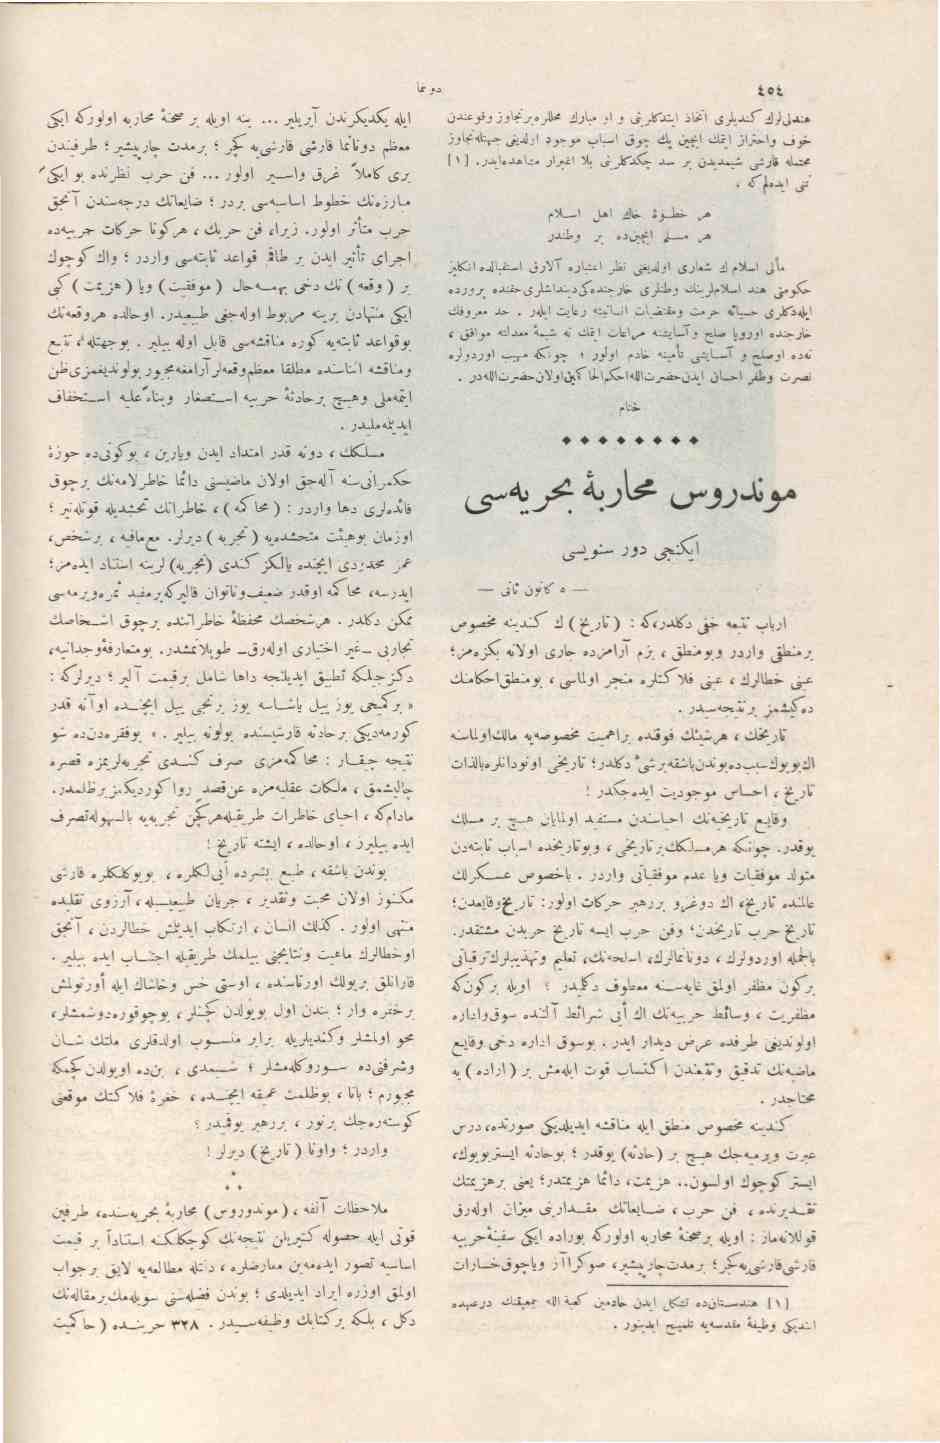 ٤٥٤
دوننما
هندلیلرك كندیلری اتخاذ ایتدكلرینی و او مبارك محللره بر تجاوز وقوعندن
خوف واحتراز ایتمك ایچین پك چوق اسباب موجود اولدیغی جهتله تجاوز
محتمله قارشی شیمدیدن بر سد چكدكلرینی بلا اغبرار مشاهده ایدر. [١]
تمنی ایده لم كه ،
هر خطـوهٔ خاك اهل اسـلام
هر مسـلم ایچین ده بر وطندر
مآلی اسلام ك شعاری اولدیغی نظر اعتباره آلارق استقبالده انكلیز
حكومتی هند اسلاملرینك وطنلری خارجنده كی دینداشلری حقنده پرورده
ایله دكلری حسیاته حرمت ومقتضیات انسانیته رعایت ایله ر . حد معروفك
خارجنده اوروپا صلح و آسایشنه مراعات ایتمك نه شیمهٔ معدلته موافق ،
نه ده اوصلح و آسـایشی تأمینه خادم اولور ؛ چونكه مهیب اوردولره
نصرت وظفر احسانی ایدن حضرت الله احكم الحا كمین اولان حضرت الله در .
ختام
موندروس محاربهٔ بحریه سی
ایكنجی دور سنویسی
— ٥ كانون ثانی —
ارباب تتبعه خفی دكلدر، كه : ( تاریخ ) ك كندینه مخصوص
بر منطقی واردر وبو منطق ، بزم آرامزده جاری اولانه بكزه مز؛
عینی خطالرك ، عینی فلاكتلره منجر اولماسی ، بومنطق احكامنك
ده كیشمز بر نتیجه سیدر .
تاریخك ، هر شیئك فوقنده بر اهمیت مخصوصه یه مالك اولماسنه
اك بویوك سبب ده بوندن باشقه بر شیء دكلدر؛ تاریخی اونودانلره بالذات
تاریخ ، احساس موجودیت ایده جكدر !
وقایع تاریخیه نك احیاسندن مستفید اولمایان هـیچ بر مسـلك
یوقدر. چونكه هر مسـلكك بر تاریخی ، وبو تاریخده اسباب ثابته دن
متولد موفقیات ویا عدم موفقیاتی واردر . باخصوص عسـكرلك
عالمنده تاریخ، اك دوغرو بر رهبر حركات اولور: تاریخ وقایعدن؛
تاریخ حرب تاریخدن؛ وفن حرب ایسه تاریخ حربدن مشتقدر.
بالجمله اوردولرك ، دونانمالرك، اسلحه نك، تعلیم وتهذیبلرك ترقیاتی
بركون مظفر اولمق غایه سـنه معطوف دكلمیدر ؛ اویله بركون كه
مظفریت ، وسائط حربیه نك اك أیی شرائط آلتنده سوق واداره
اولوندیغی طرفده عرض دیدار ایدر . بوسوق اداره دخی وقایع
ماضیه نك تدقیق وتتبعندن اكتساب قوت ایله مش بر ( اراده ) یه
محتاجدر .
كندینه مخصوص منطق ایله مناقشه ایدیلدیكی صورتده، درس
عبرت ویرمیه جك هیچ بر (حادثه) یوقدر ؛ بوحادثه ایستر بویوك،
ایستر كوچوك اولسون.. هزیمت، دائما هزیمتدر؛ یعنی بر هزیمتك
تقـدیرنده ، فن حرب ، ضـایعاتك مقـدارینی میزان اوله رق
قوللانه ماز : اویله بر صحنهٔ محاربه اولوركه بوراده ایكی سفینهٔ حربیه
قارشی قارشی یه كچر؛ بر مدت چارپیشیر، صوكرا آز ویا چوق خسارات
[١] هندسـتانده تشكل ایدن خادمین كعبة الله جمعیتنك درعهده
ایتدیكی وظیفهٔ مقدسه یه تلمیح ایدییور .
ایله یكدیكرندن آیریلیر ... ینه اویله بر صحنهٔ محاربه اولوركه ایكی
معظم دونانما قارشی قارشی یه كچر ؛ بر مدت چارپیشیر ؛ طرفیندن
بری كاملاً غرق واسـیر اولور ... فن حرب نظرنده بو ایكی
مبارزه نك خطوط اساسیه سی بردر ؛ ضایعاتك درجه سندن آنجق
حرب متأثر اولور. زیرا، فن حربك ، هركونا حركات حربیه ده
اجرای تأثیر ایدن بر طاقم قواعد ثابته سی واردر ؛ واك كوچوك
بر ( وقعه ) نك دخی بهمـه حال ( موفقیت ) ویا ( هزیمت ) كبی
ایكی منتهادن برینه مربوط اوله جغی طبیعیدر. اوحالده هر وقعه نك
بوقواعد ثابته یه كوره مناقشه سی قابل اوله بیلیر . بو جهتله، تتبع
ومناقشه اثناسنده مطلقا معظم وقعه لر آرامغه مجبور بولوندیغمزی ظن
ایتمه ملی وهـیچ بر حادثهٔ حربیه اسـتصغار وبناءً علیه اسـتخفاف
ایدیلمه ملیدر .
مسـلكك ، دونه قدر امتداد ایدن ویارین ، بوكونی ده حوزهٔ
حكمرانی سنه آله جق اولان ماضیسنی دائما خاطرلامه نك بر چوق
فائده لری دها واردر : ( محاكمه ) ، خاطراتك تحشیدیله قوتله نیر ؛
اوزمان بوهیئت متحشده یه ( تجربه ) دیرلر. مع مافیه ، بر شخص،
عمر محدودی ایچنده یالكز كندی (تجربه) لرینه استناد ایده مز؛
ایدرسه، محاكمه اوقدر ضعیف وناتوان قالیر كه بر مفید ثمره ویرمه سی
ممكن دكلدر. هر شخصك محفظهٔ خاطراتنده بر چوق اشـخاصك
تجاربی ـ غیر اختیاری اوله رق ـ طوپلانمشدر. بومتعارفهٔ وجدانیه،
دكزجیلكه تطبیق ایدیلنجه داها شامل بر قیمت آلیر ؛ دیرلركه :
« بر كمیجی یوز ییل یاشـاسه یوز برنجی ییل ایچنـده اوآنه قدر
كورمه دیكی بر حادثه قارشیسنده بولونه بیلیر . » بوفقره دن ده شو
نتیجه چیقـار : محاكمه مزی صرف كنـدی تجربه لریمزه قصره
چالیشمق ، ملكات عقلیه مزه عن قصد روا كوردیكمز بر ظلمدر.
مادام كه ، احیای خاطرات طریقیله هركچن تجربه یه بالسهوله تصرف
ایده بیلیرز ، اوحالده ، ایشته تاریخ !
بوندن باشقه ، طبع بشرده أیی لكلره ، بویوكلكلره قارشی
مكنوز اولان محبت وتقدیر ، جریان طبیعیسـیله ، آرزوی تقلیده
منتهی اولور . كذلك انسان ، ارتكاب ایدیلمش خطالردن ، آنجق
اوخطالرك ماهیت ونتایجنی بیلمك طریقیله اجتنـاب ایده بیلیر .
قارانلق بر یولك اورتاسنده ، اوستی خس وخاشاك ایله أورتولمش
بر حفره وار ؛ بندن اول بویولدن كچنلر ، بوچوقوره دوشمشلر ،
محو اولمشلر وكندیلریله برابر منسـوب اولدقلری ملتك شـان
وشرفنی ده سـوروكله مشلر ؛ شـیمدی ، بن ده اویولدن كچمكه
مجبورم ؛ بانا ، بوظلمت عمیقه ایچنـده ، حفرهٔ فلاكتك موقعنی
كوستره جك بر نور ، بر رهبر یوقمیدر ؟
واردر ؛ واونا ( تاریخ ) دیرلر !
ملاحظات آنفه ، ( موندوروس ) محاربهٔ بحریه سـنده، طرفین
قوتی ایله حصوله كتیریلن نتیجه نك كوچكلكنه استناداً بر قیمت
اساسیه تصور ایده مه ین معارضلره ، دائما مطالعه یه لایق بر جواب
اولمق اوزره ایراد ایدیلدی ؛ بوندن فضله سنی سویله مك بر مقاله نك
دكل ، بلكه بر كتابك وظیفه سـیدر . ٣٢٨ حربنـده ( حاكمیت